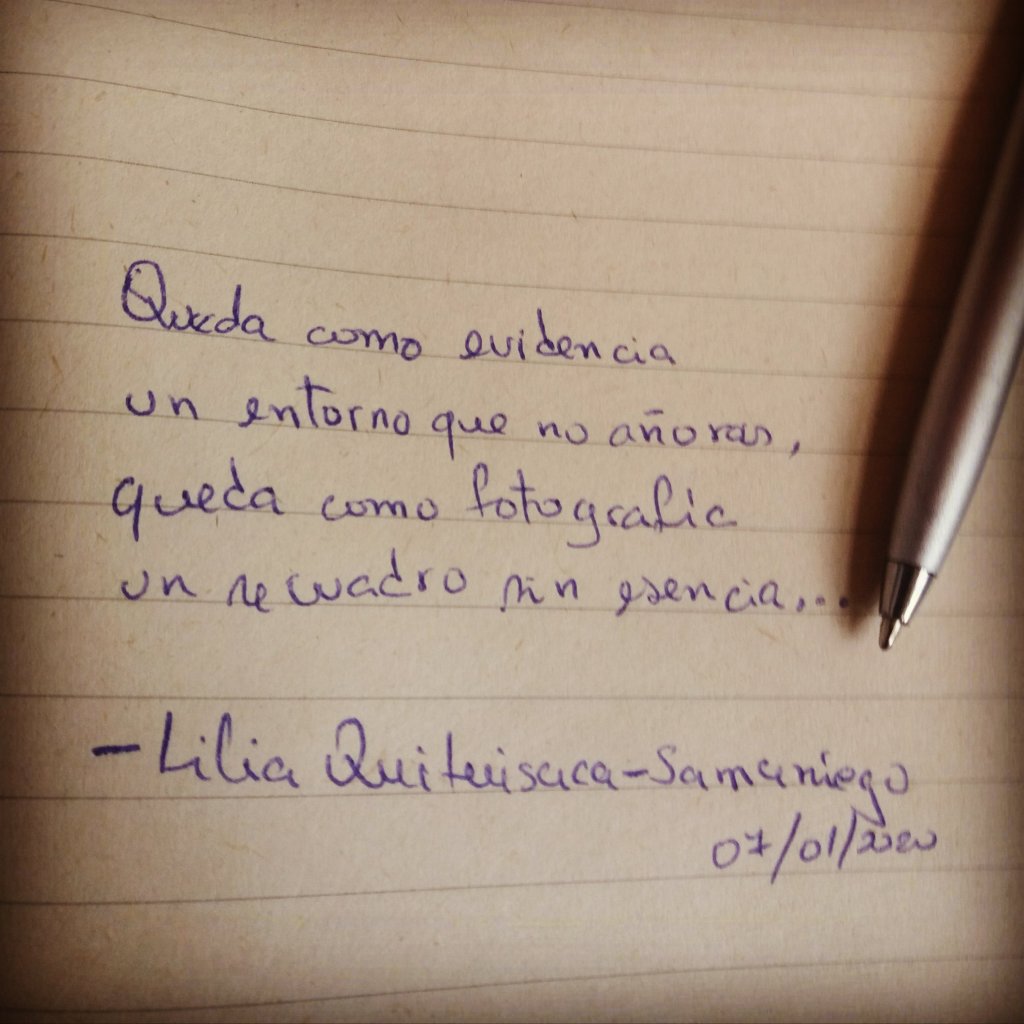 Queda como evidencia
un entorno que no añoras,
queda como fotografia
un recuadro sin esencia...
- Lilia Quituisaca-Samaniego
07/01/2020